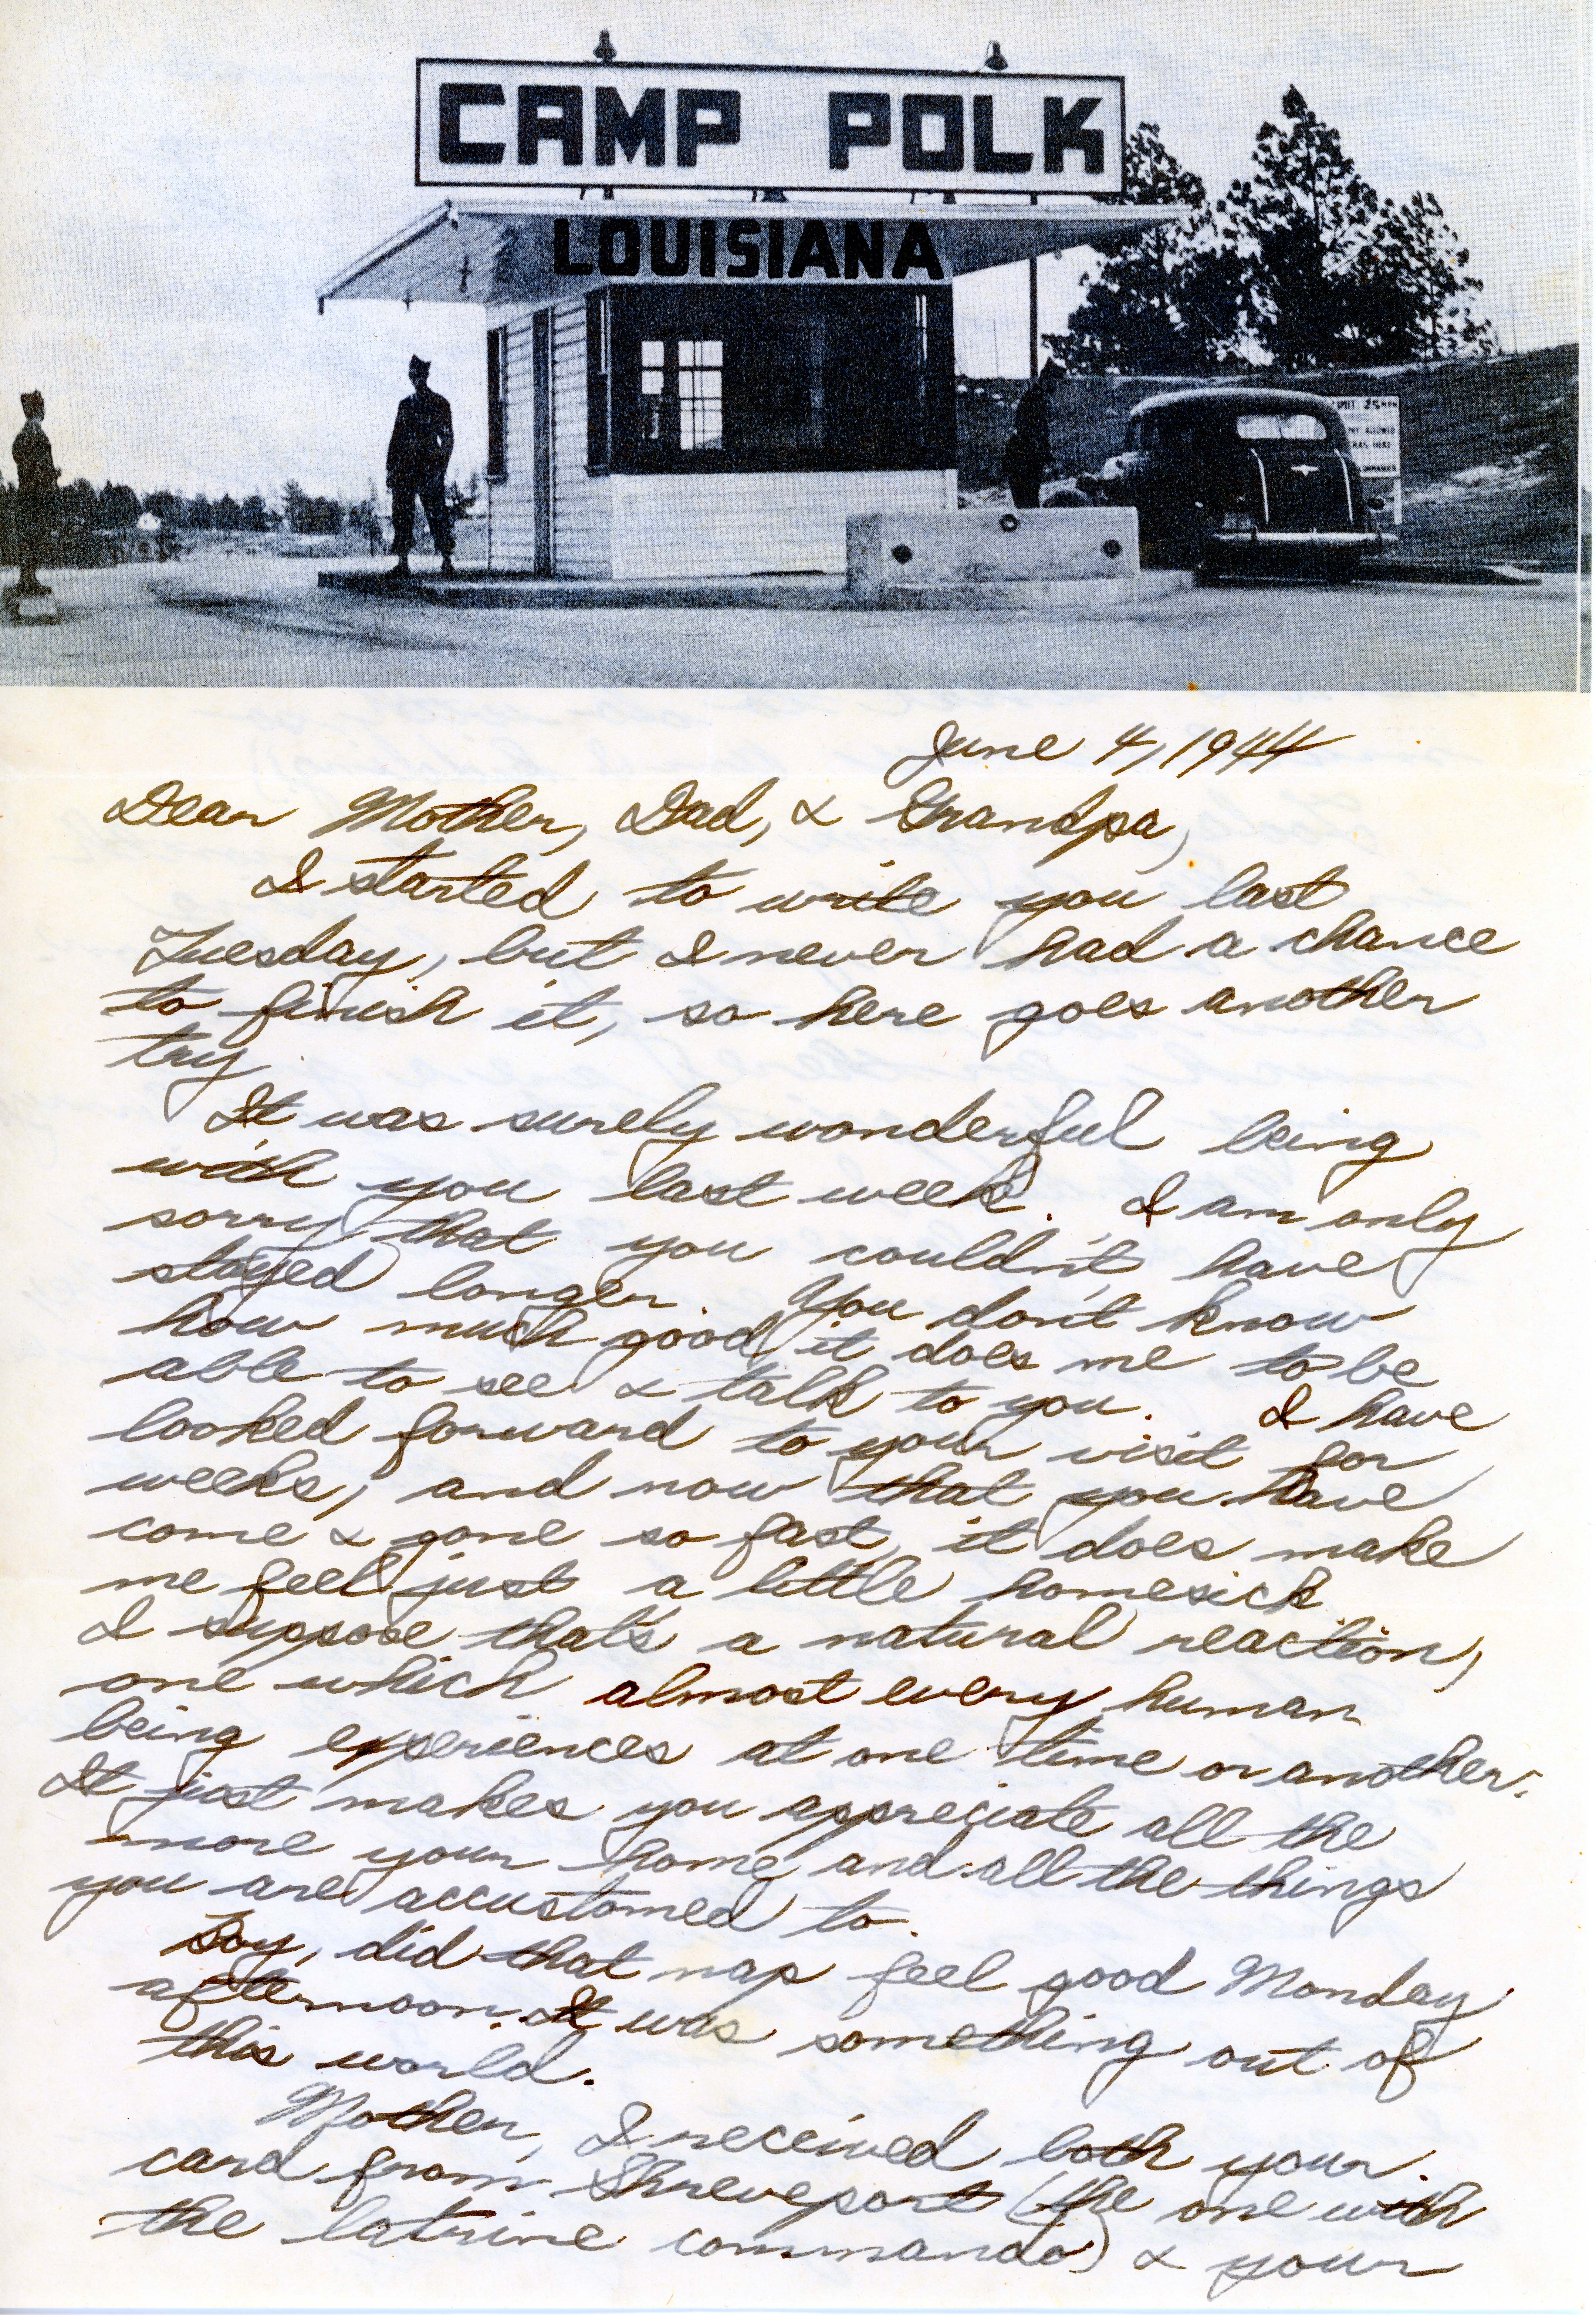 CAMP POLK
LOUISIANA
LIMIT 25 MPH
ALLOWED
HERE
June 4, 1944
Dear Mother, Dad, & Grandpa,
I started to write you last
Tuesday, but I never had a chance
to finish it, so here goes another
try.
It was surely wonderful being
with you last week. I am only
sorry that you couldn't have
stayed longer. You don't know
how much good it does me to be
able to see & talk to you. I have
looked forward to your visit for
weeks, and now that you have
come & gone so fast, it does make
me feel just a little homesick
I suppose that's a natural reaction,
one which almost every human
being experiences at one time or another.
It just makes you appreciate all the
more your home and all the things
you are accustomed to.
Boy, did that nap feel good Monday
afternoon. It was something out of
this world.
Mother, I received both your
card from Shreveport (the one with
the latrine commando) & your